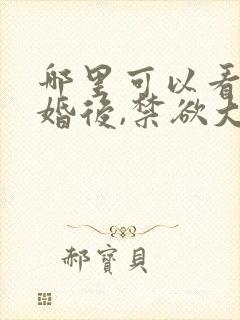 哪里可以看
婚後,禁欲大
郝寶貝